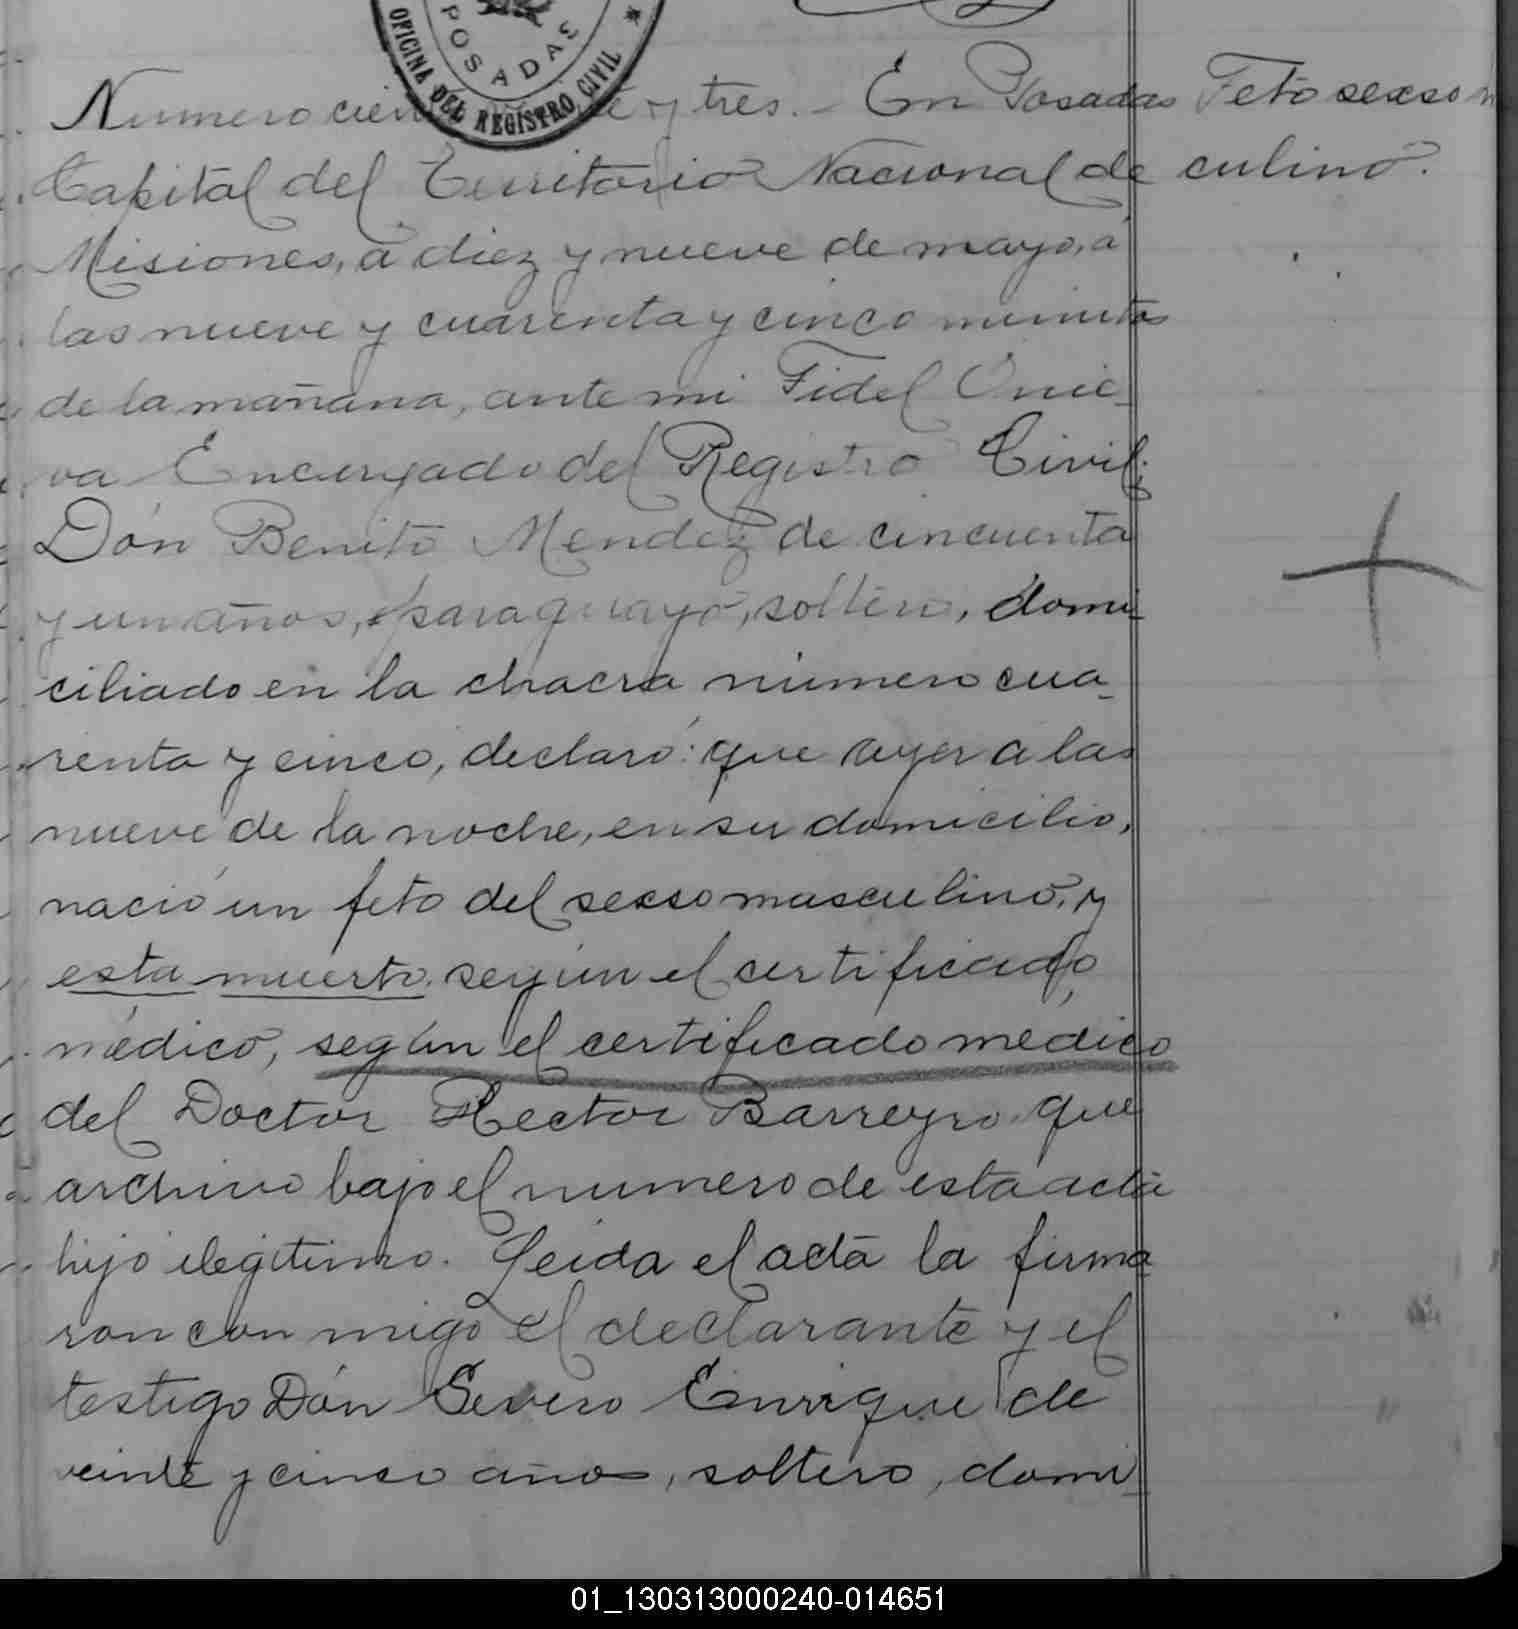 POSADAS
OFICINA DEL REGISTRO CIVIL
Numero cien y tres. - En Posadas
Capital del Territorio Nacional de
Misiones, a diez y nueve de mayo, a
las nueve y cuarenta y cinco minutos
de la mañana, ante mi Fidel Onie-
va Encargado del Registro Civil;
Dón Benito Mendez de cincuenta
y un años, paraguayo, soltero, domi-
ciliado en la chacra número cua-
renta y cinco, declaró: que ayer a las
nueve de la noche, en su domicilio,
nació un feto del sexso masculino, y
esta muerto. según el certificado
médico, según el certificado medico
del Doctor Hector Barreyro que
archivo bajo el numero de esta acta
hijo ilegitimo. Leida el acta la firma-
ron con migo el declarante y el
testigo Dón Severo Enrique de
veinte y cinco años, soltero, domi-
Feto sexso
culino.
01_130313000240-014651